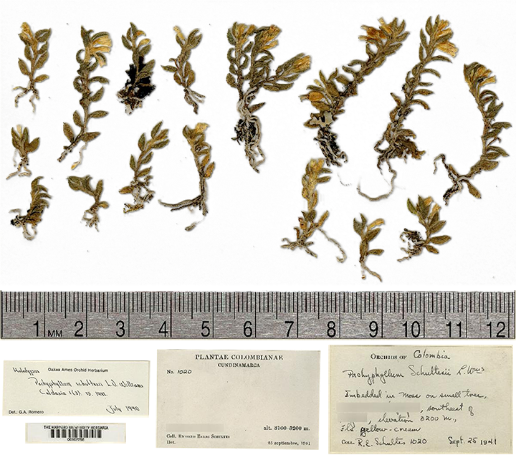 1 MM 2 3 4 5 6 7 8 9 10 11 12
Holotype
Oakes Ames Orchid Herbarium
Pachyphyllum schultesii L.O. Williams
Caldasia
1941
Det. G.A. Romero
July 1990
PLANTAE COLOMBIANAE
CUNDINAMARCA
No. 1020
alt. 3200 m.
Coll. Richard Evans Schultes
Det.
25 septiembre, 1941
ORCHIDS OF Colombia
Pachyphyllum Schultesii
Imbedded in moss on small trees,
, southwest of
, elevation 3200 m.,
Fld yellow-cream
Coll. R.E. Schultes 1020 Sept. 25 1941